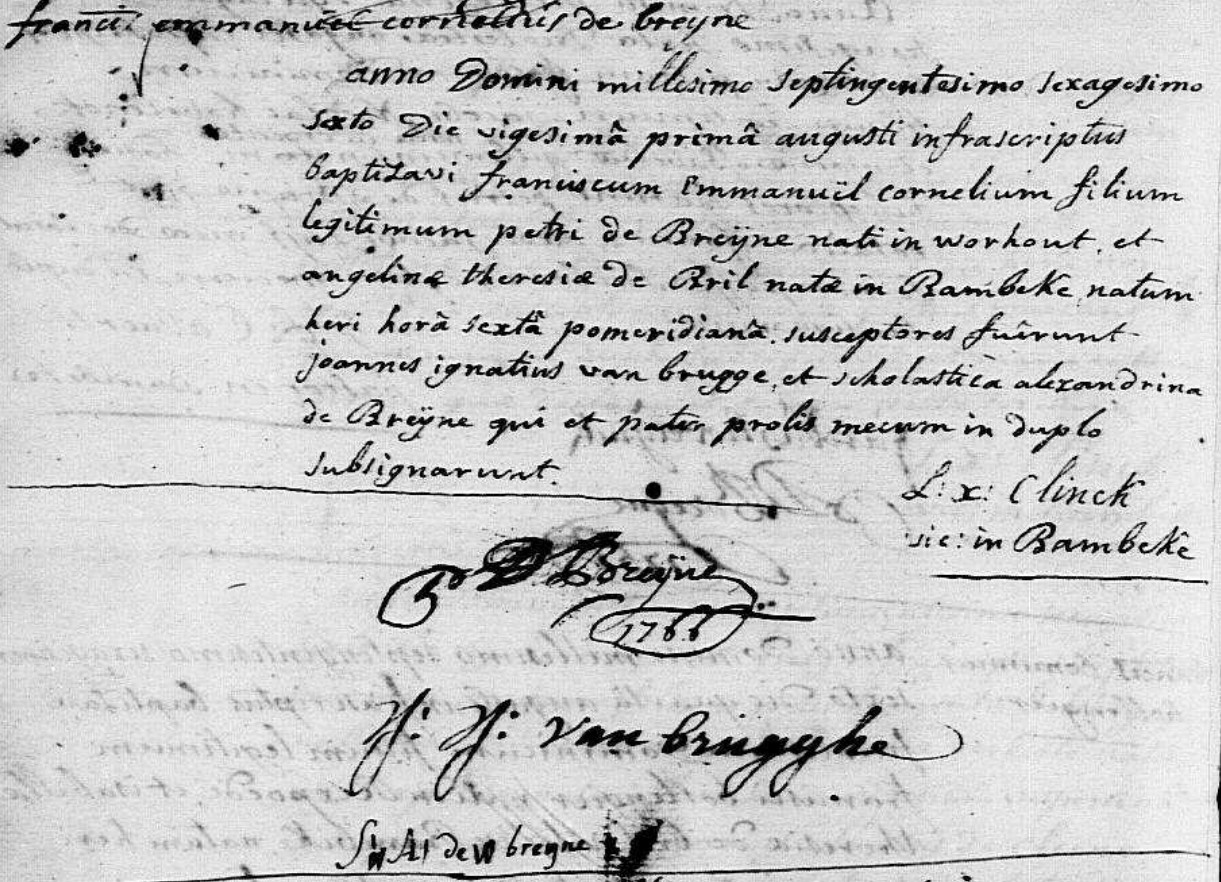 franc: emmanuel cornelius de breyne
anno Domini millesimo septingentesimo sexagesimo
sexto Die vigesimâ primâ augusti infrascriptus
baptizavi franciscum Emmanuël cornelium filium
legitimum petri de Breÿne nati in workout, et
angelinæ theresiæ de Bril natæ in Bambeke, natum
heri horâ sextâ pomeridianâ. susceptores fuêrunt
joannes ignatius van brugge, et scholastica alexandrina
de Breÿne qui et pater prolis mecum in duplo
subsignarunt.
L: x: Clinck
vic: in Bambeke
D Breijne
1766
J: J: van brugghe
de breyne